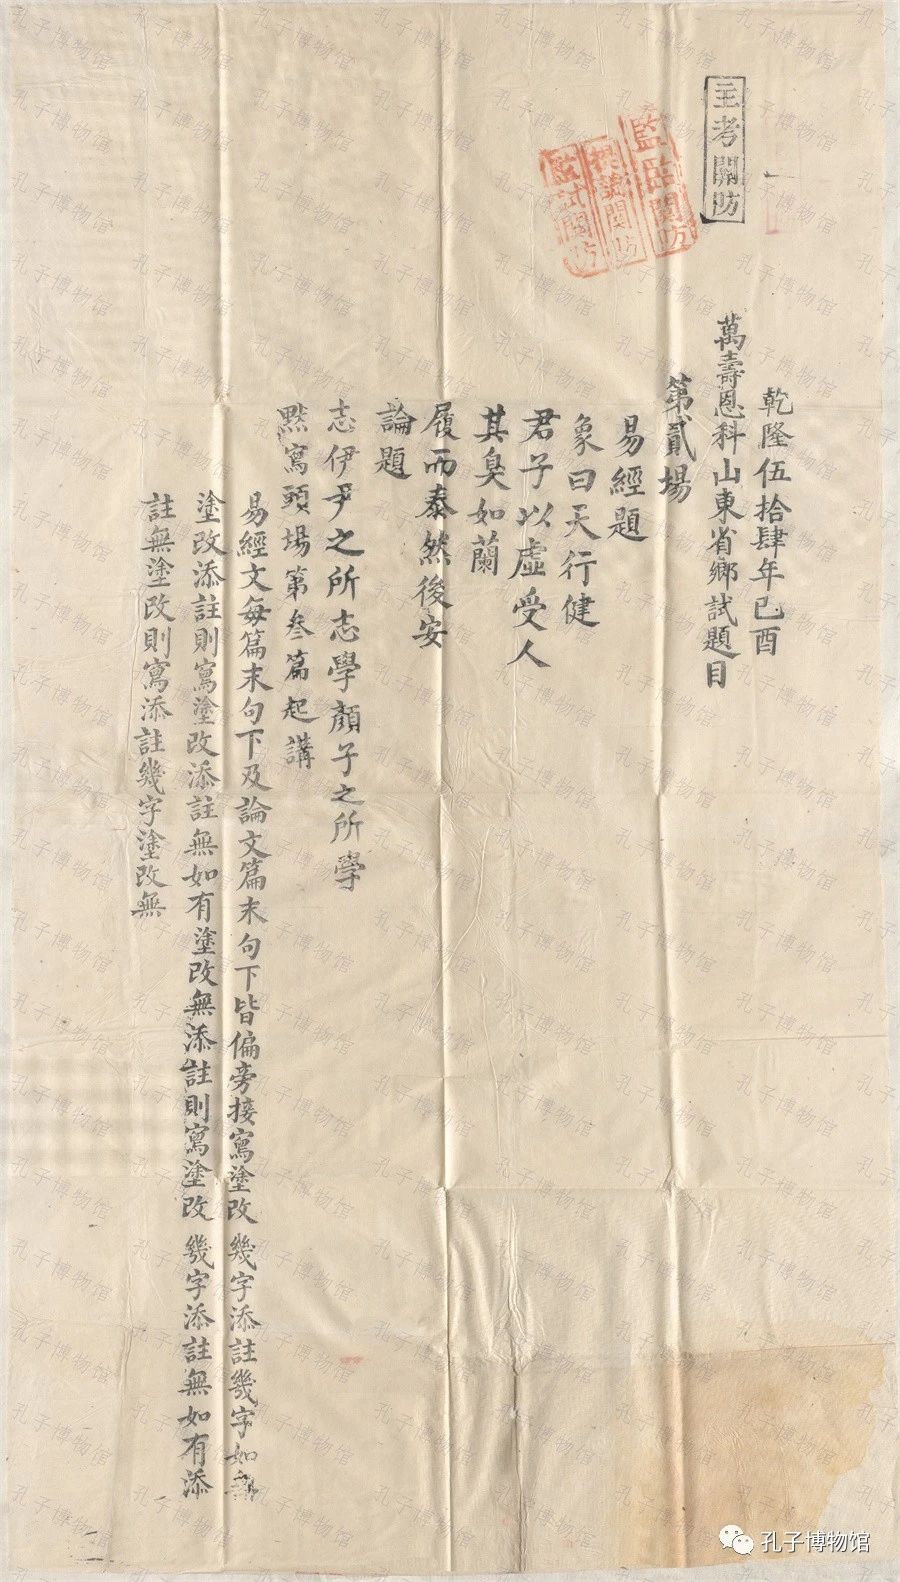 主考關防
監臨關防
提調關防
監試關防
乾隆伍拾肆年己酉
萬壽恩科山東省鄉試題目
第貳場
易經題
象曰天行健
君子以虛受人
其臭如蘭
履而泰然後安
論題
志伊尹之所志學顏子之所學
默寫頭場第叁篇起講
易經文每篇末句下及論文篇末句下皆偏旁接寫塗改幾字添註幾字如無
塗改添註則寫塗改添註無如有塗改無添註則寫塗改幾字添註無如有添
註無塗改則寫添註幾字塗改無
孔子博物馆